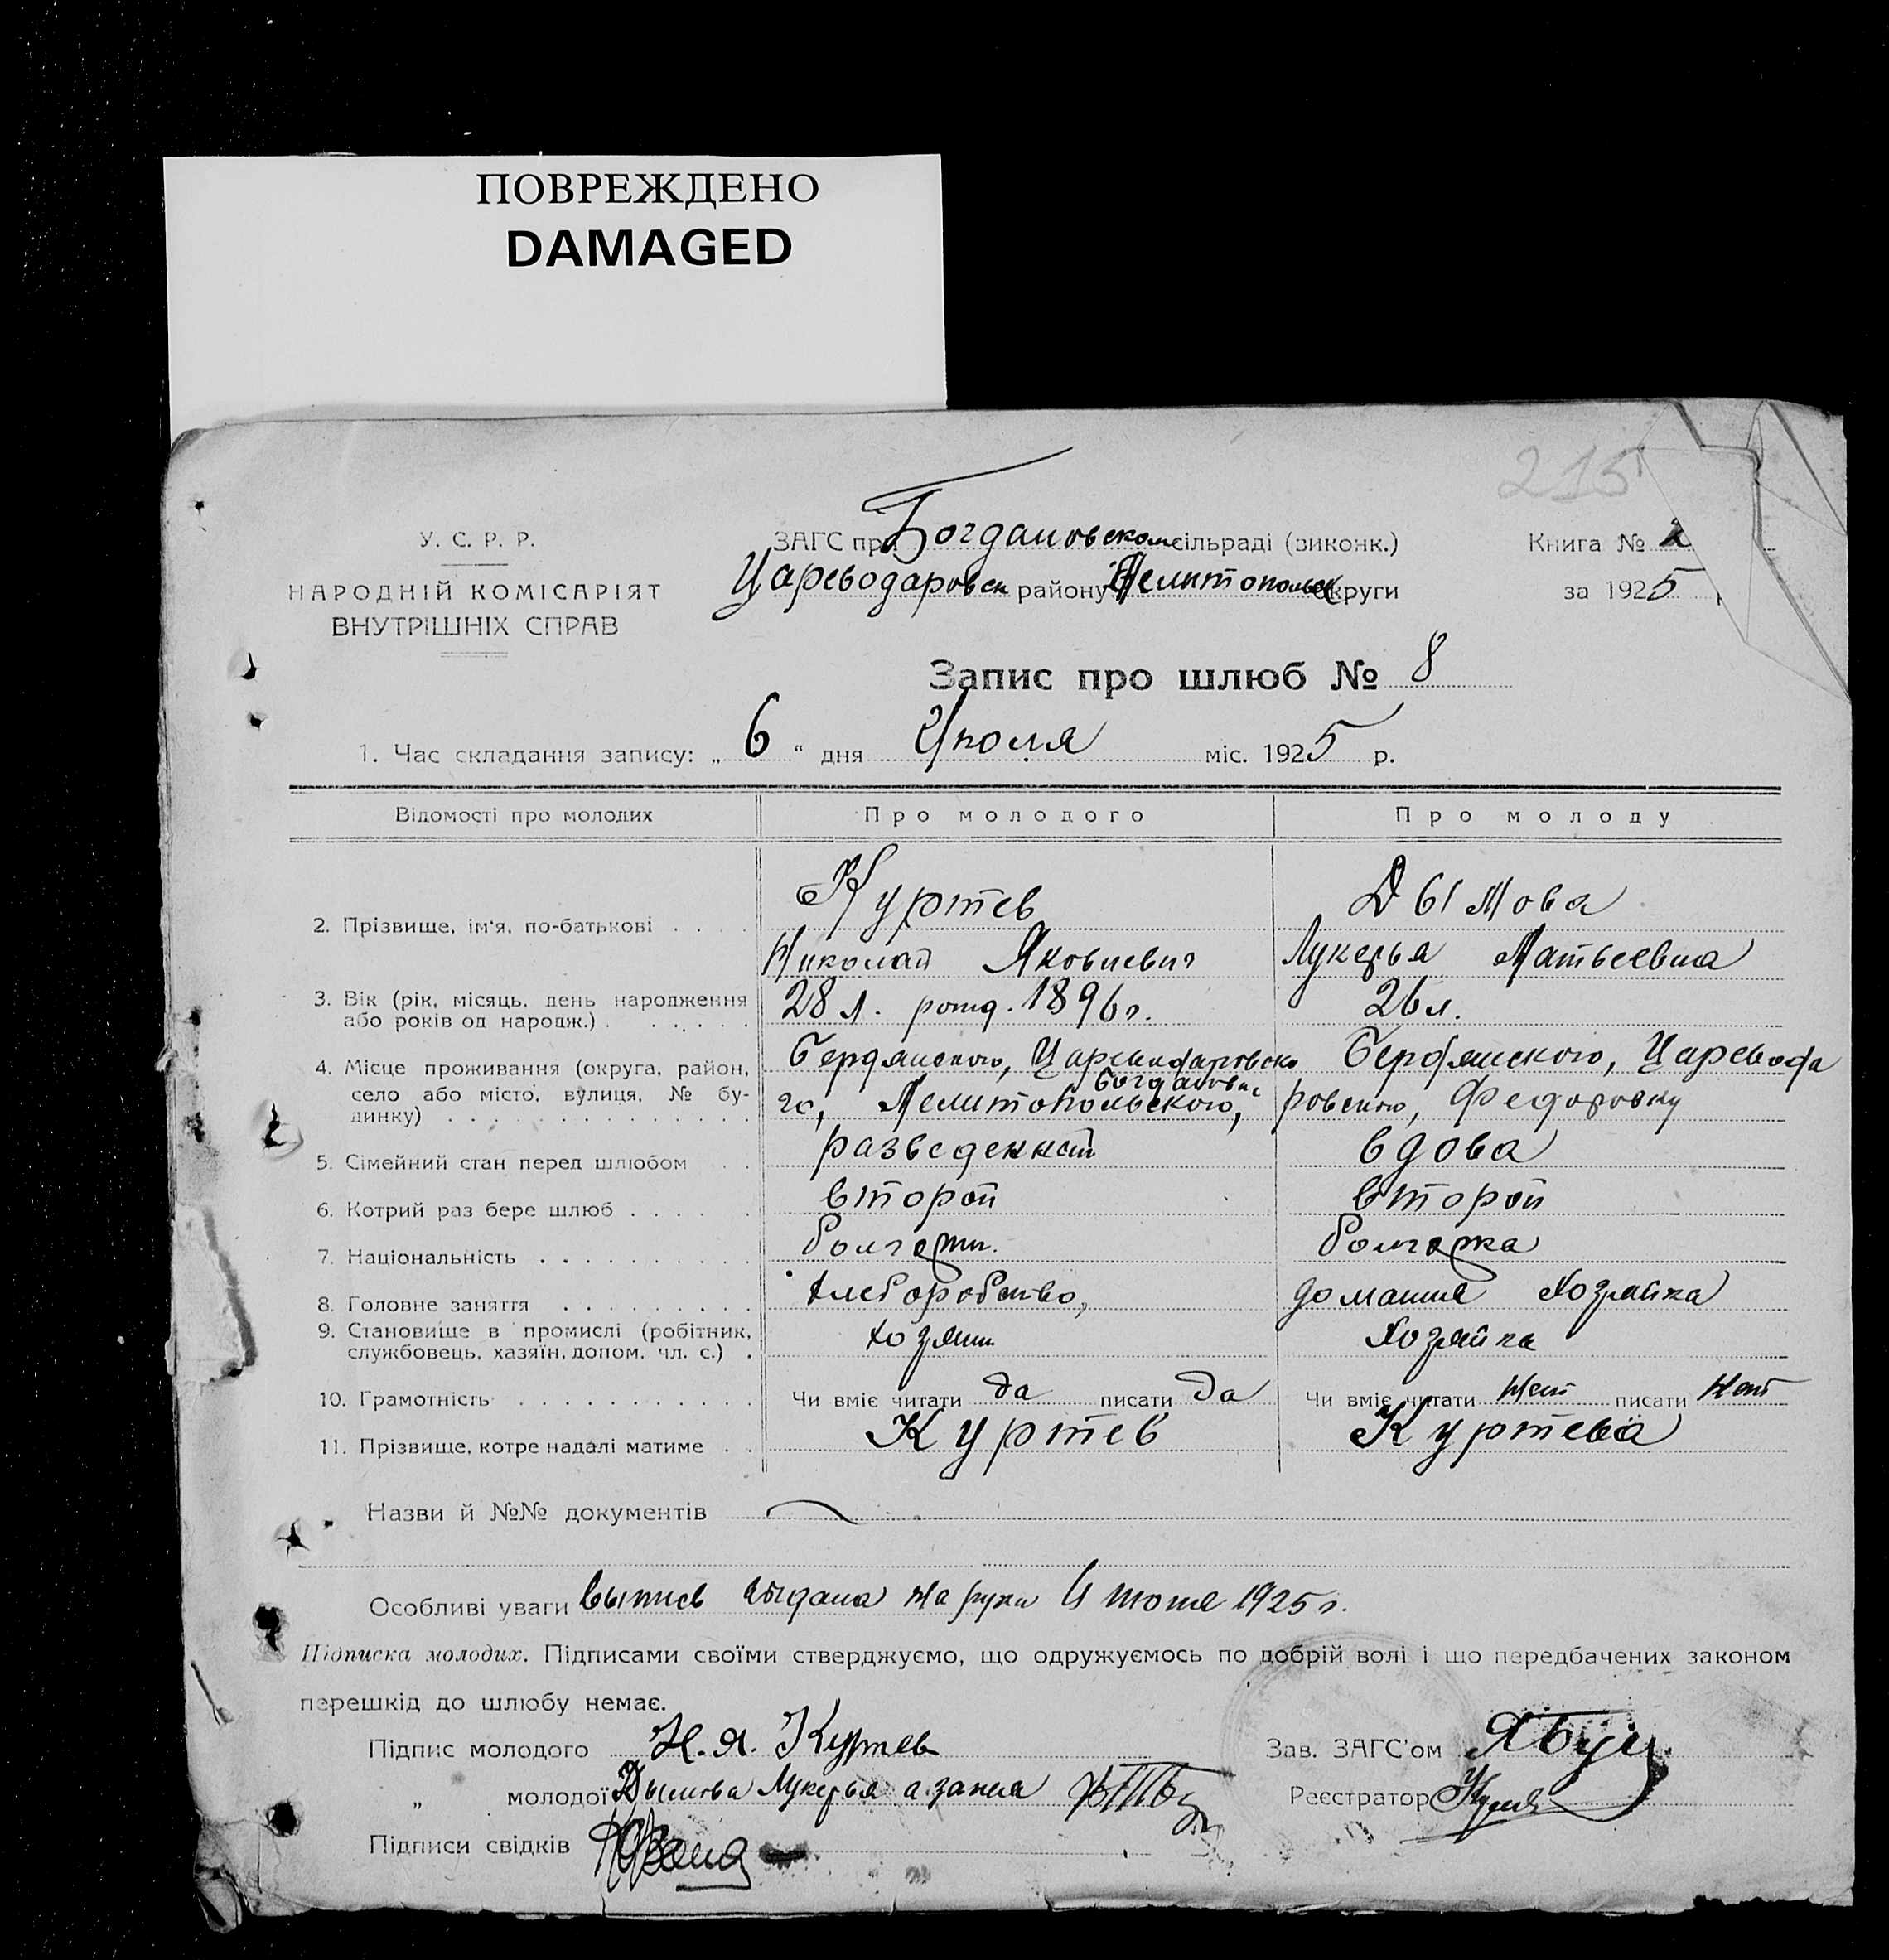 ПОВРЕЖДЕНО
DAMAGED
215
У. С. Р. Р.
НАРОДНІЙ КОМІСАРІЯТ
ВНУТРІШНІХ СПРАВ
ЗАГС при Богдановском сільраді (виконк.)
Цареводаровск району Мелитопольск округи
Книга № 2
за 1925
Запис про шлюб № 8
1. Час складання запису: „ 6 “ дня Июля міс. 1925 р.
Відомості про молодих Про молодого Про молоду
2. Прізвище, ім'я, по-батькові . . . . Куртев Дымова
Николай Яковлевич Лукерья Матвеевна
3. Вік (рік, місяць, день народження
або років од народж.) . . . . . . 28 л. рожд. 1896 г. 26 л.
4. Місце проживання (округа, район,
село або місто, вулиця, № бу-
динку) . . . . . . . . . . . . . .
Бердянского, Цареводаровско
Богдановка
го, Мелитопольского,
Бердянского, Царевода
ровского, Федоровку
5. Сімейний стан перед шлюбом . . разведенный вдова
6. Котрий раз бере шлюб . . . . . второй второй
7. Національність . . . . . . . . . . болгарин. болгарка
8. Головне заняття . . . . . . . . . хлеборобство, домашня хозяйка
9. Становище в промислі (робітник,
службовець, хазяїн, допом. чл. с.) . хозяин хозяйка
10. Грамотність . . . . . . . . . . . Чи вміє читати да писати да Чи вміє читати нет писати нет
11. Прізвище, котре надалі матиме . . Куртев Куртева
Назви й №№ документів
Особливі уваги выпись выдана на руки 1925 г.
Підписка молодих. Підписами своїми стверджуємо, що одружуємось по добрій волі і що передбачених законом
перешкід до шлюбу немає.
Підпис молодого Н. Я. Куртев
Зав. ЗАГС'ом
„ молодої Дымова Лукерья а за нея
Реєстратор
Підписи свідків